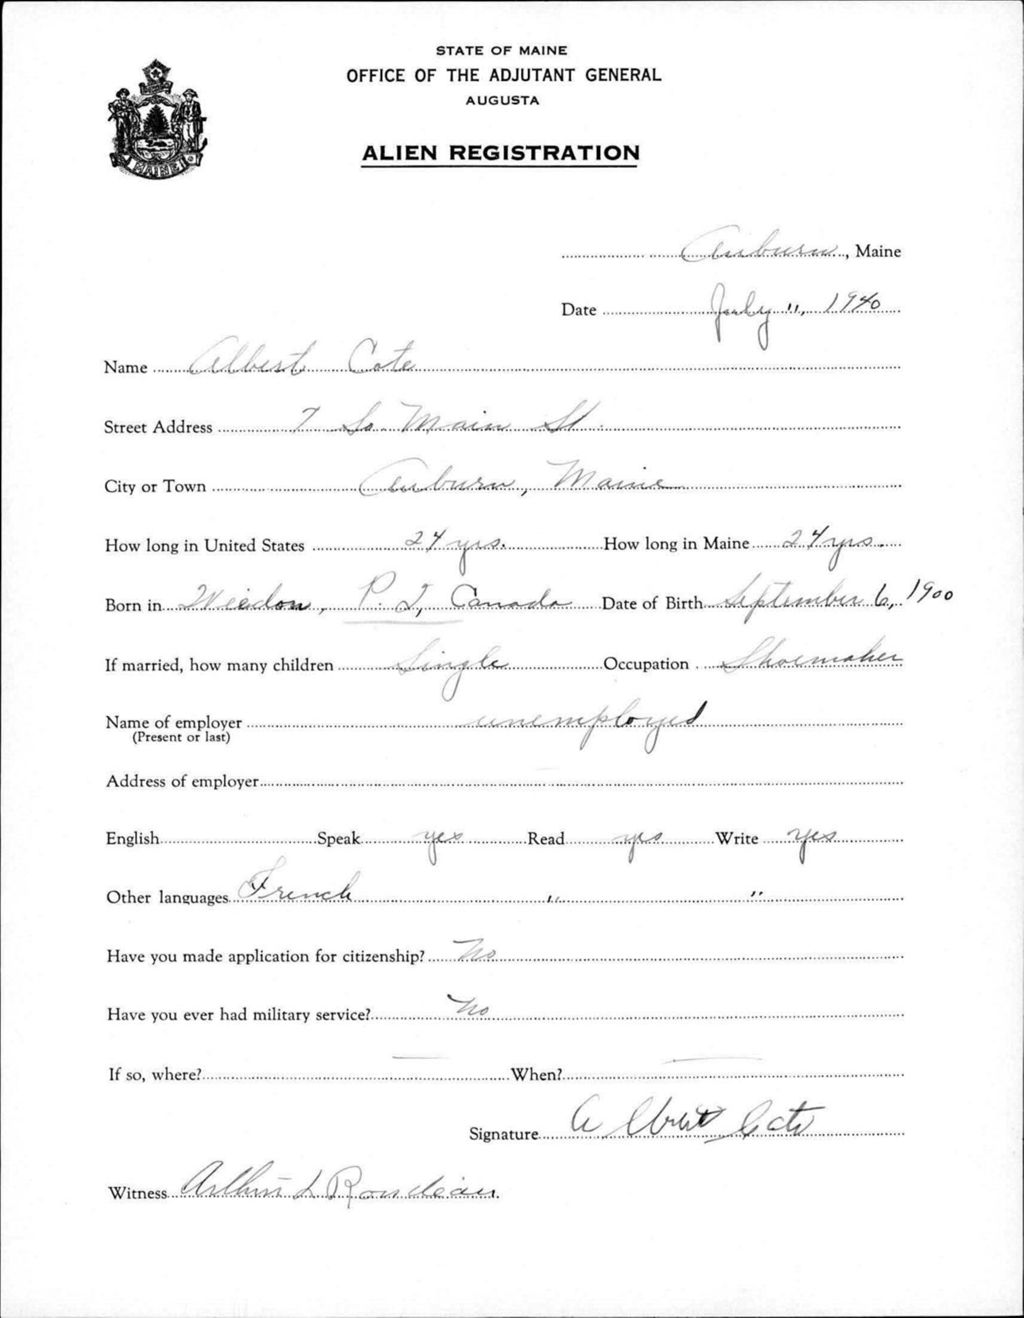 STATE OF MAINE
OFFICE OF THE ADJUTANT GENERAL
AUGUSTA
ALIEN REGISTRATION
MAINE
Auburn, Maine
Date July 11, 1940
Name Albert Cote
Street Address 7 So. Main St.
City or Town Auburn, Maine
How long in United States 24 yrs. How long in Maine 24 yrs.
Born in Weedon, P. Q, Canada Date of Birth September 6, 1900
If married, how many children Single Occupation Shoemaker
Name of employer unemployed
(Present or last)
Address of employer
English Speak yes Read yes Write yes
Other languages French " "
Have you made application for citizenship? No
Have you ever had military service? No
If so, where? — When? —
Signature Albert Cote
Witness Arthur L Rondeau.